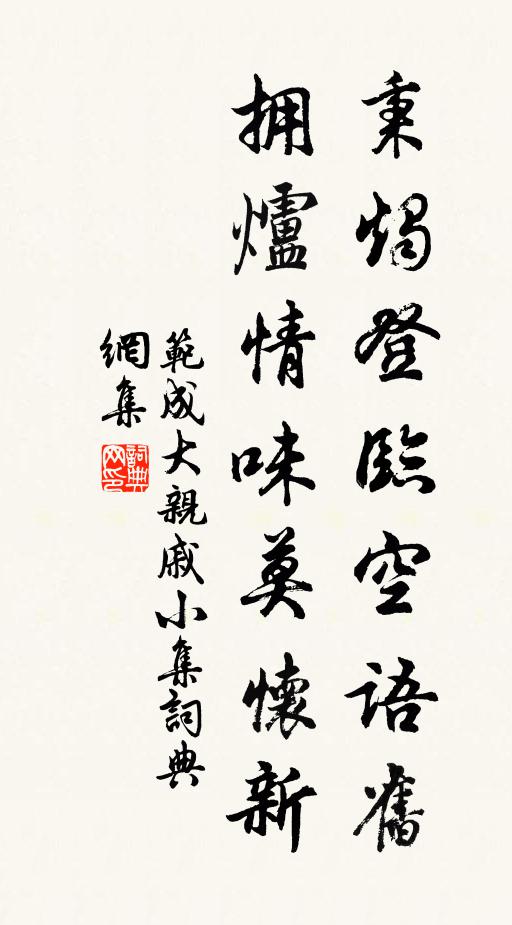 秉燭登臨空語舊
擁爐情味莫懷新
範成大親戚小集詞典
網集
詞典
网印